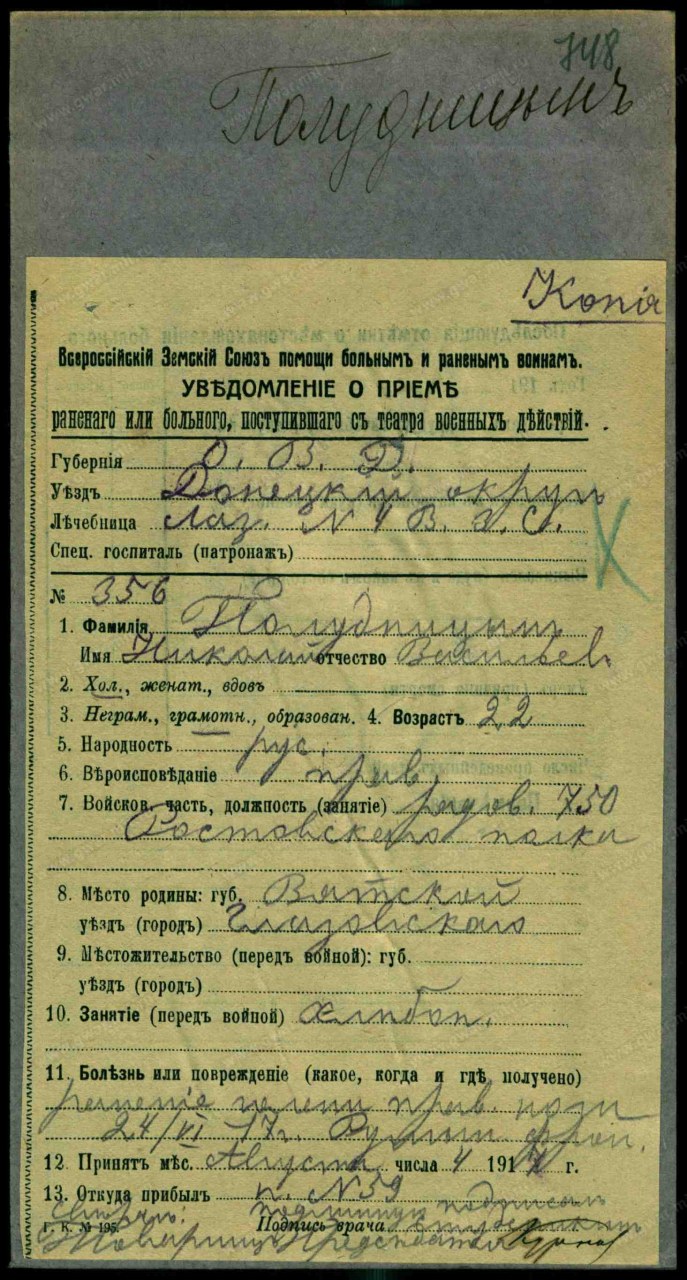 748
Полудницынъ
Копія
Всероссійскій Земскій Союзъ помощи больнымъ и раненымъ воинамъ.
УВѢДОМЛЕНІЕ О ПРІЕМѢ
раненаго или больного, поступившаго съ театра военныхъ дѣйствій.
Губернія О. В. Д.
Уѣздъ Донецкій округъ
Лѣчебница Лаз. N 4 В. З. С.
Спец. госпиталь (патронажъ)
№ 356
1. Фамилія Полудницынъ
Имя Николай отчество Васильев.
2. Хол., женат., вдовъ
3. Неграм., грамотн., образован. 4. Возрастъ 22
5. Народность рус.
6. Вѣроисповѣданіе прав.
7. Войсков. часть, должность (занятіе) рядов. 750
Ростовскаго полка
8. Мѣсто родины: губ. Вятской
уѣздъ (городъ) Глазовскаго
9. Мѣстожительство (передъ войной): губ.
уѣздъ (городъ)
10. Занятіе (передъ войной) хлѣбоп.
11. Болѣзнь или поврежденіе (какое, когда и гдѣ получено)
раненіе голени прав. ноги
24/VI 17г. Румын. фрон.
12 Принятъ мѣс. Августа числа 4 1917 г.
13. Откуда прибылъ п. N 59
подлинную подписалъ
г. К. № 195. Подпись врача
Товарищъ Предсѣдателя